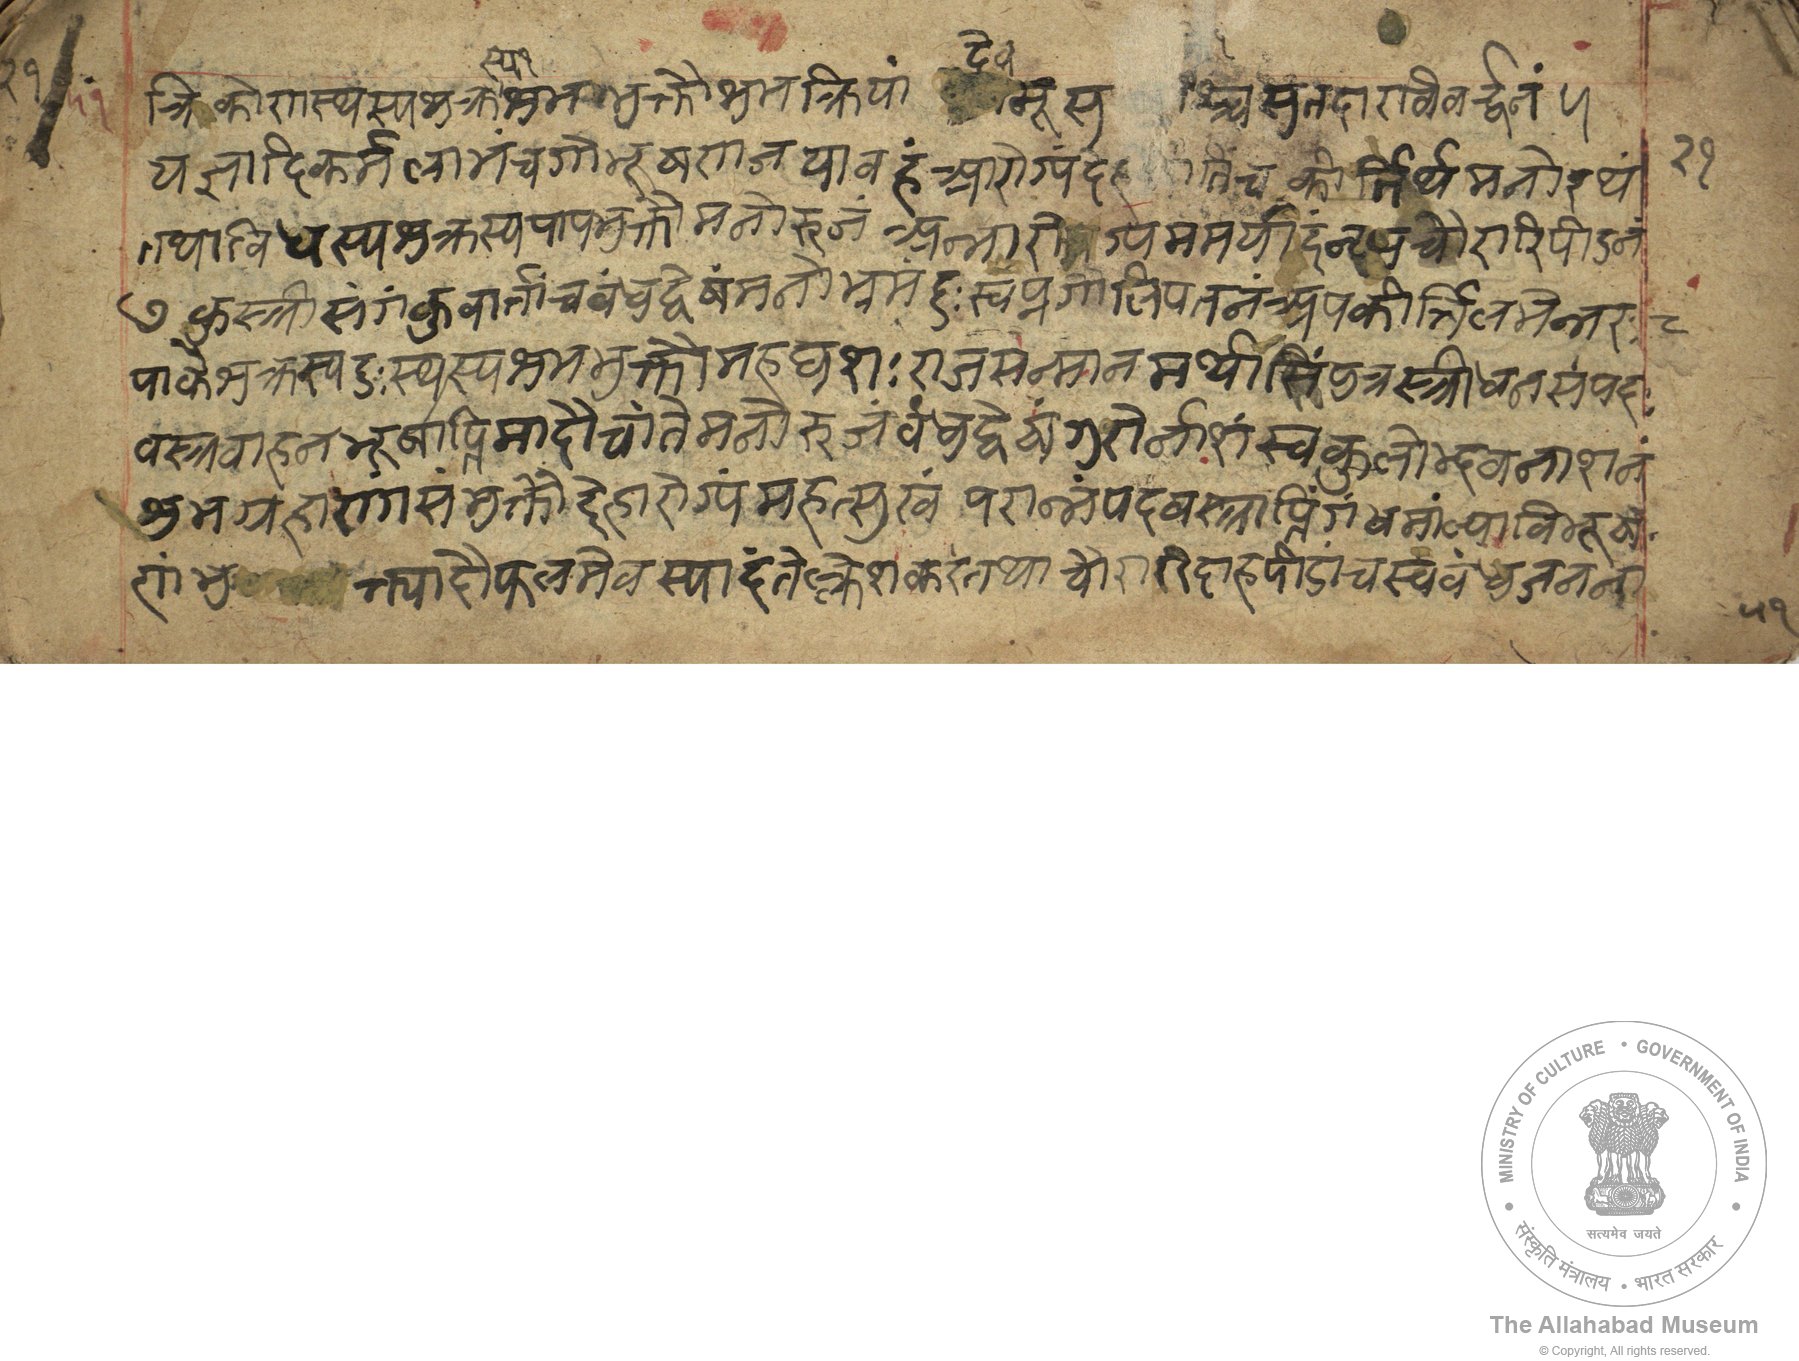 २१
५१
स्य१
देव
त्रिकोणस्थस्यभुक्तशुभभुक्तौशुभक्रियां भूसु सुतदारविवर्द्धनं ५
यज्ञादिकर्मलाभंचगोभूषणजयावहं आरोग्यं कीर्त्तिर्थमनोरथं
२१
तथाविधस्यभुक्तस्यपापभुक्तौमनोरुजं चौरारिपीडनं
७ कुस्त्रीसंगंकुवार्त्तांचबंधुद्वेषंमनोभ्रमं दुःस्वप्न पतनंअपकीर्त्तिलभेन्नरः ८
पाकेभुक्तस्यदुःस्थस्यशुभभुक्तौमहद्यशः राजसन्मानमर्थाप्तिंपुत्रस्त्रीधनसंपदः
वस्त्रवाहनभूषाप्तिमादौचांतेमनोरुजं बंधुद्वेषंगुरोर्न्नाशंस्वकुलोद्भवनाशनं
शुभग्रहाणांसंभुक्तौदेहारोग्यंमहत्सुखं परान्नंपदवस्त्राप्तिंगंधमाल्याविभूष
णं भु क्त्यादौफलमेवस्यादंतेक्लेशकरंतथा चौराग्निदाहपीडांचस्वबंधुजनन
५१
MINISTRY OF CULTURE • GOVERNMENT OF INDIA
सत्यमेव जयते
संस्कृति मंत्रालय • भारत सरकार
The Allahabad Museum
© Copyright, All rights reserved.